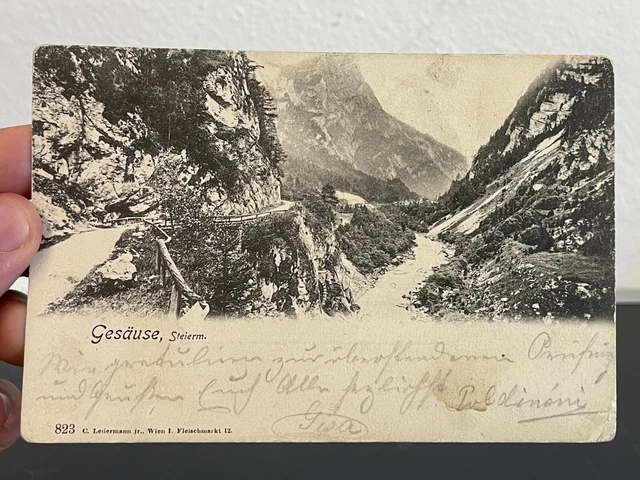 Gesäuse, Steierm.
Wir gratulieren zur überstandenen Prüfung
und grüßen Euch Alle herzlichst
823 C. Ledermann jr., Wien I. Fleischmarkt 12.